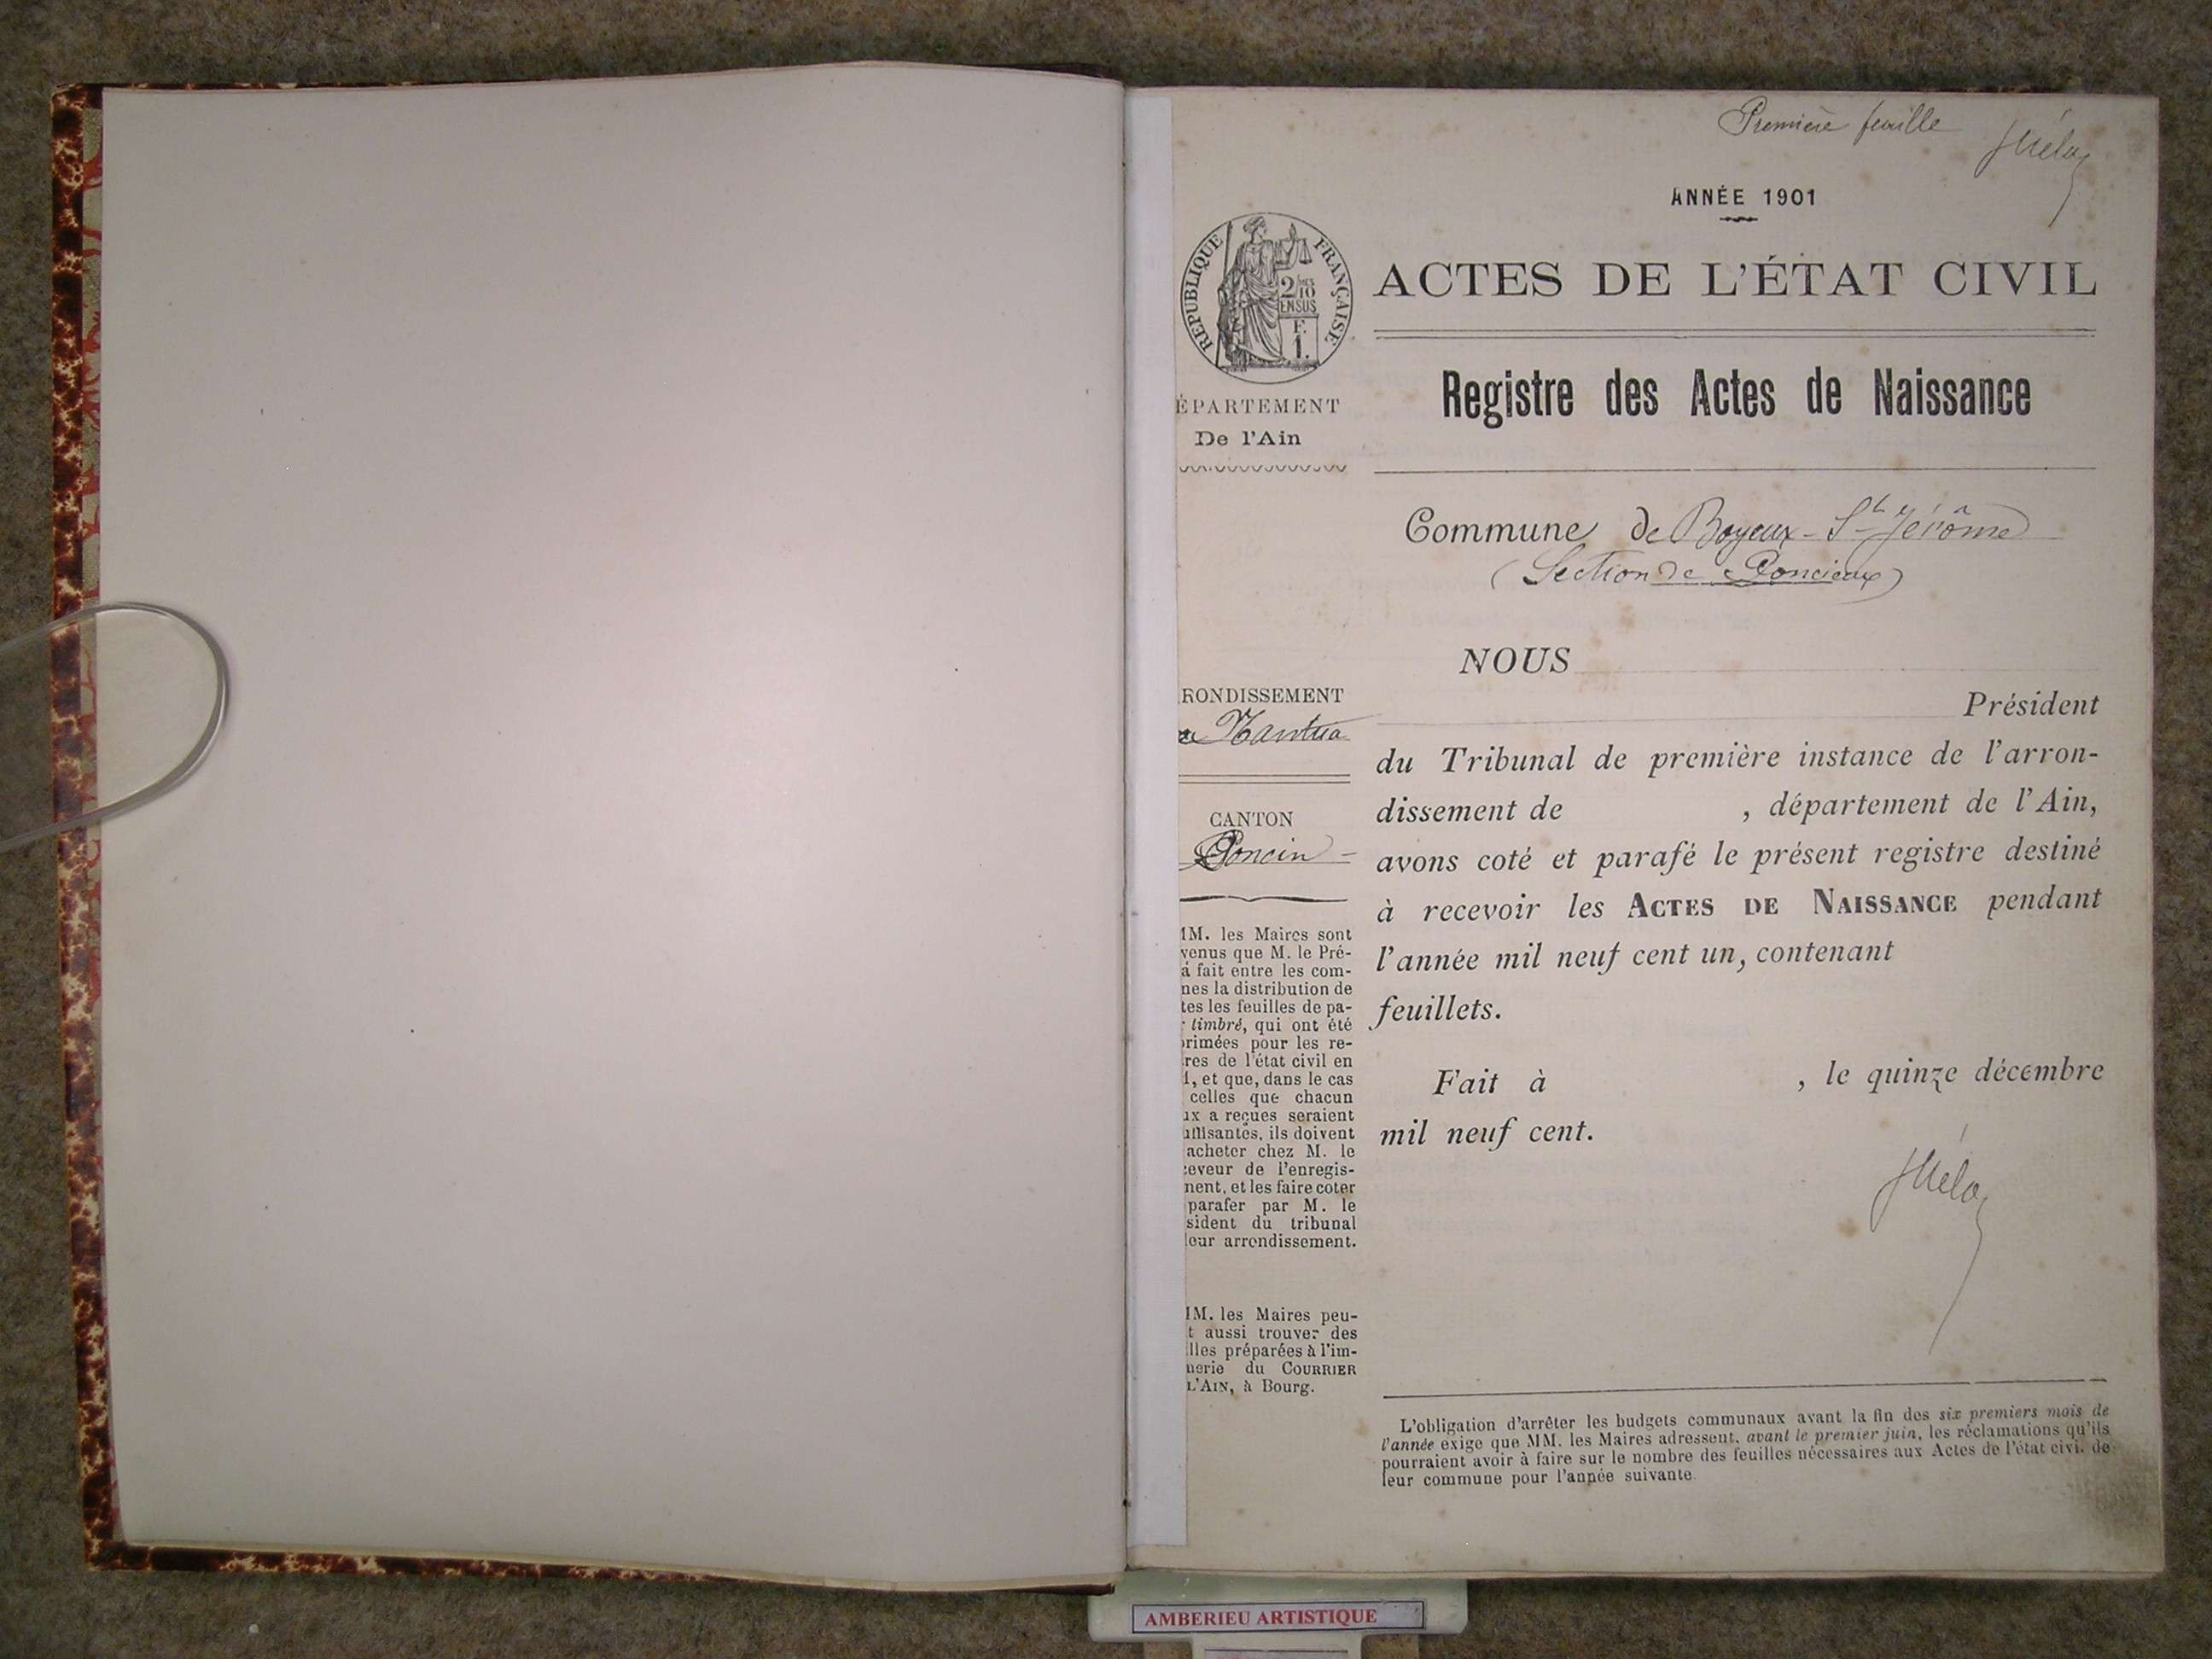 Première feuille
ANNÉE 1901
RÉPUBLIQUE FRANÇAISE
2/10
EN SUS
F.
1.
ACTES DE L'ÉTAT CIVIL
ÉPARTEMENT
De l'Ain
Registre des Actes de Naissance
Commune de Boyeux-St-Jérôme
(Section de Poncieux)
RONDISSEMENT
Nantua
CANTON
Poncin
MM. les Maires sont
venus que M. le Pré-
a fait entre les com-
nes la distribution de
tes les feuilles de pa-
r timbré, qui ont été
primées pour les re-
res de l'état civil en
1, et que, dans le cas
celles que chacun
ux a reçues seraient
uffisantes, ils doivent
acheter chez M. le
ceveur de l'enregis-
ment, et les faire coter
parafer par M. le
sident du tribunal
leur arrondissement.
MM. les Maires peu-
t aussi trouver des
lles préparées à l'im-
merie du COURRIER
L'AIN, à Bourg.
NOUS
Président
du Tribunal de première instance de l'arron-
dissement de , département de l'Ain,
avons coté et parafé le présent registre destiné
à recevoir les ACTES DE NAISSANCE pendant
l'année mil neuf cent un, contenant
feuillets.
Fait à , le quinze décembre
mil neuf cent.
L'obligation d'arrêter les budgets communaux avant la fin des six premiers mois de
l'année exige que MM. les Maires adressent, avant le premier juin, les réclamations qu'ils
pourraient avoir à faire sur le nombre des feuilles nécessaires aux Actes de l'état civil de
leur commune pour l'année suivante.
AMBERIEU ARTISTIQUE